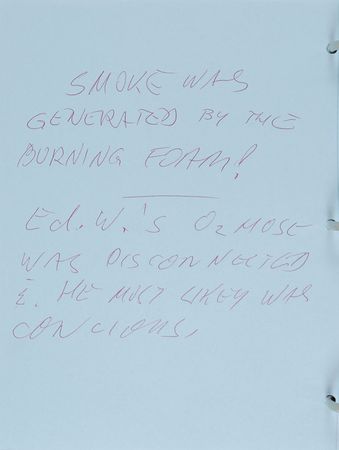 SMOKE WAS
GENERATED BY THE
BURNING FOAM!
Ed. W.'s O₂ HOSE
WAS DISCONNECTED
&. HE MOST LIKEY WAS
CONCIOUS,